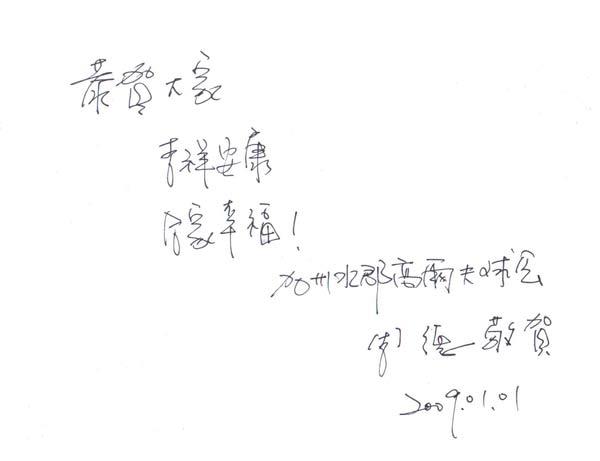 恭賀大家
吉祥安康
合家幸福!
加州水郡高爾夫球会
敬賀
2009.01.01